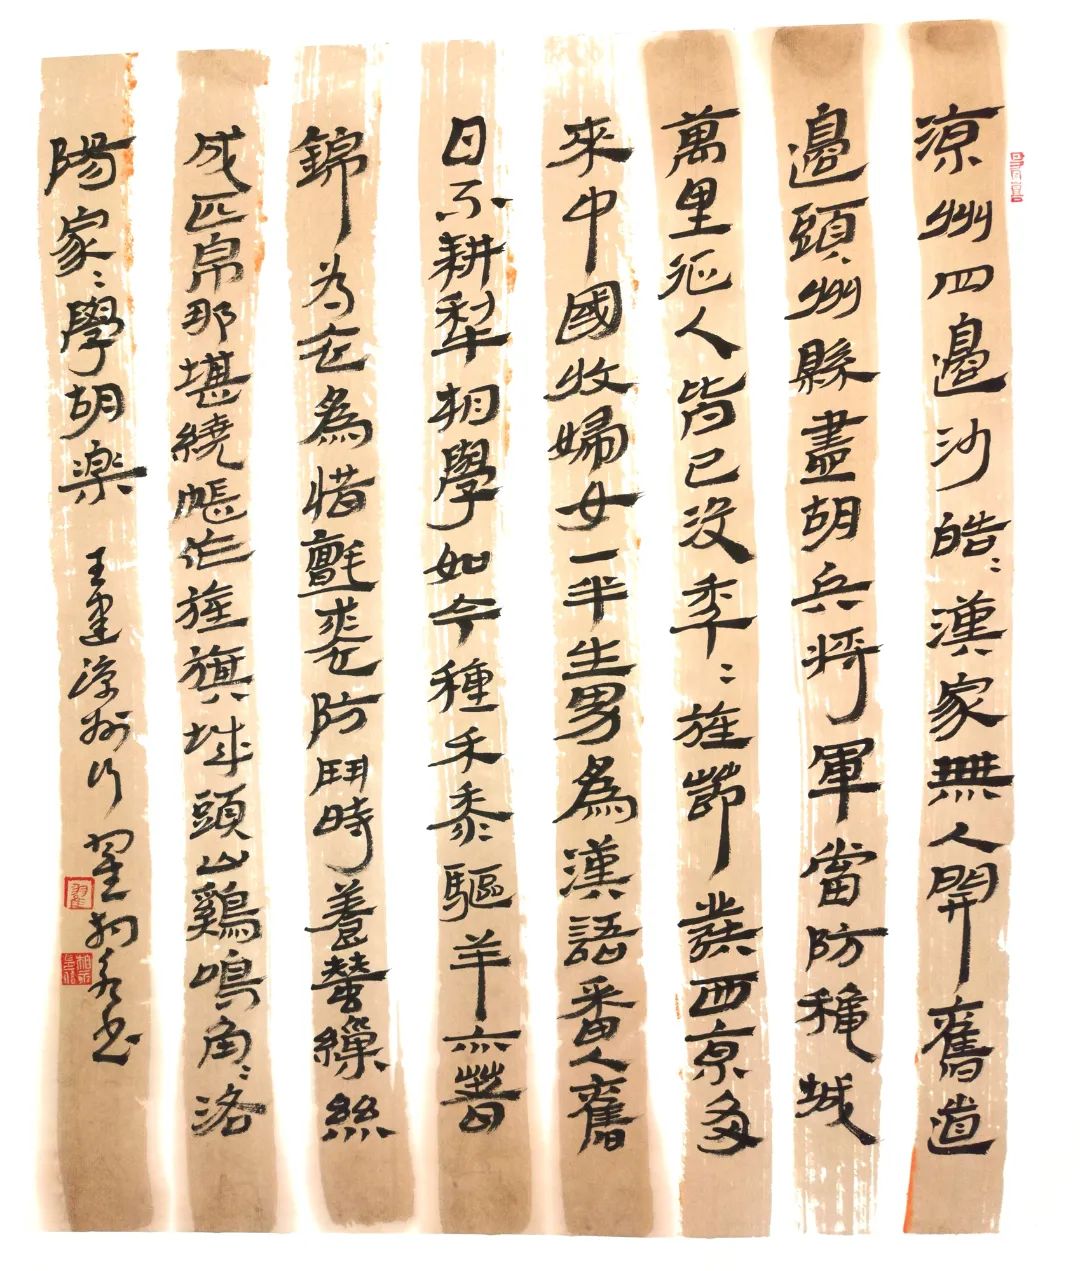 涼州四邊沙皓〻漢家無人開舊道
邊頭州縣盡胡兵將軍當防龝城
萬里征人皆已沒秊〻旌節發西京多
來中國收婦女一半生男為漢語番人舊
日不耕犁相學如今種禾黍驅羊亦著
錦为衣為惜氈裘防鬥時養蠶繅絲
成匹帛那堪繞帳作旌旗城頭山鷄鳴角〻洛
陽家〻學胡楽 王建涼州行 翟書